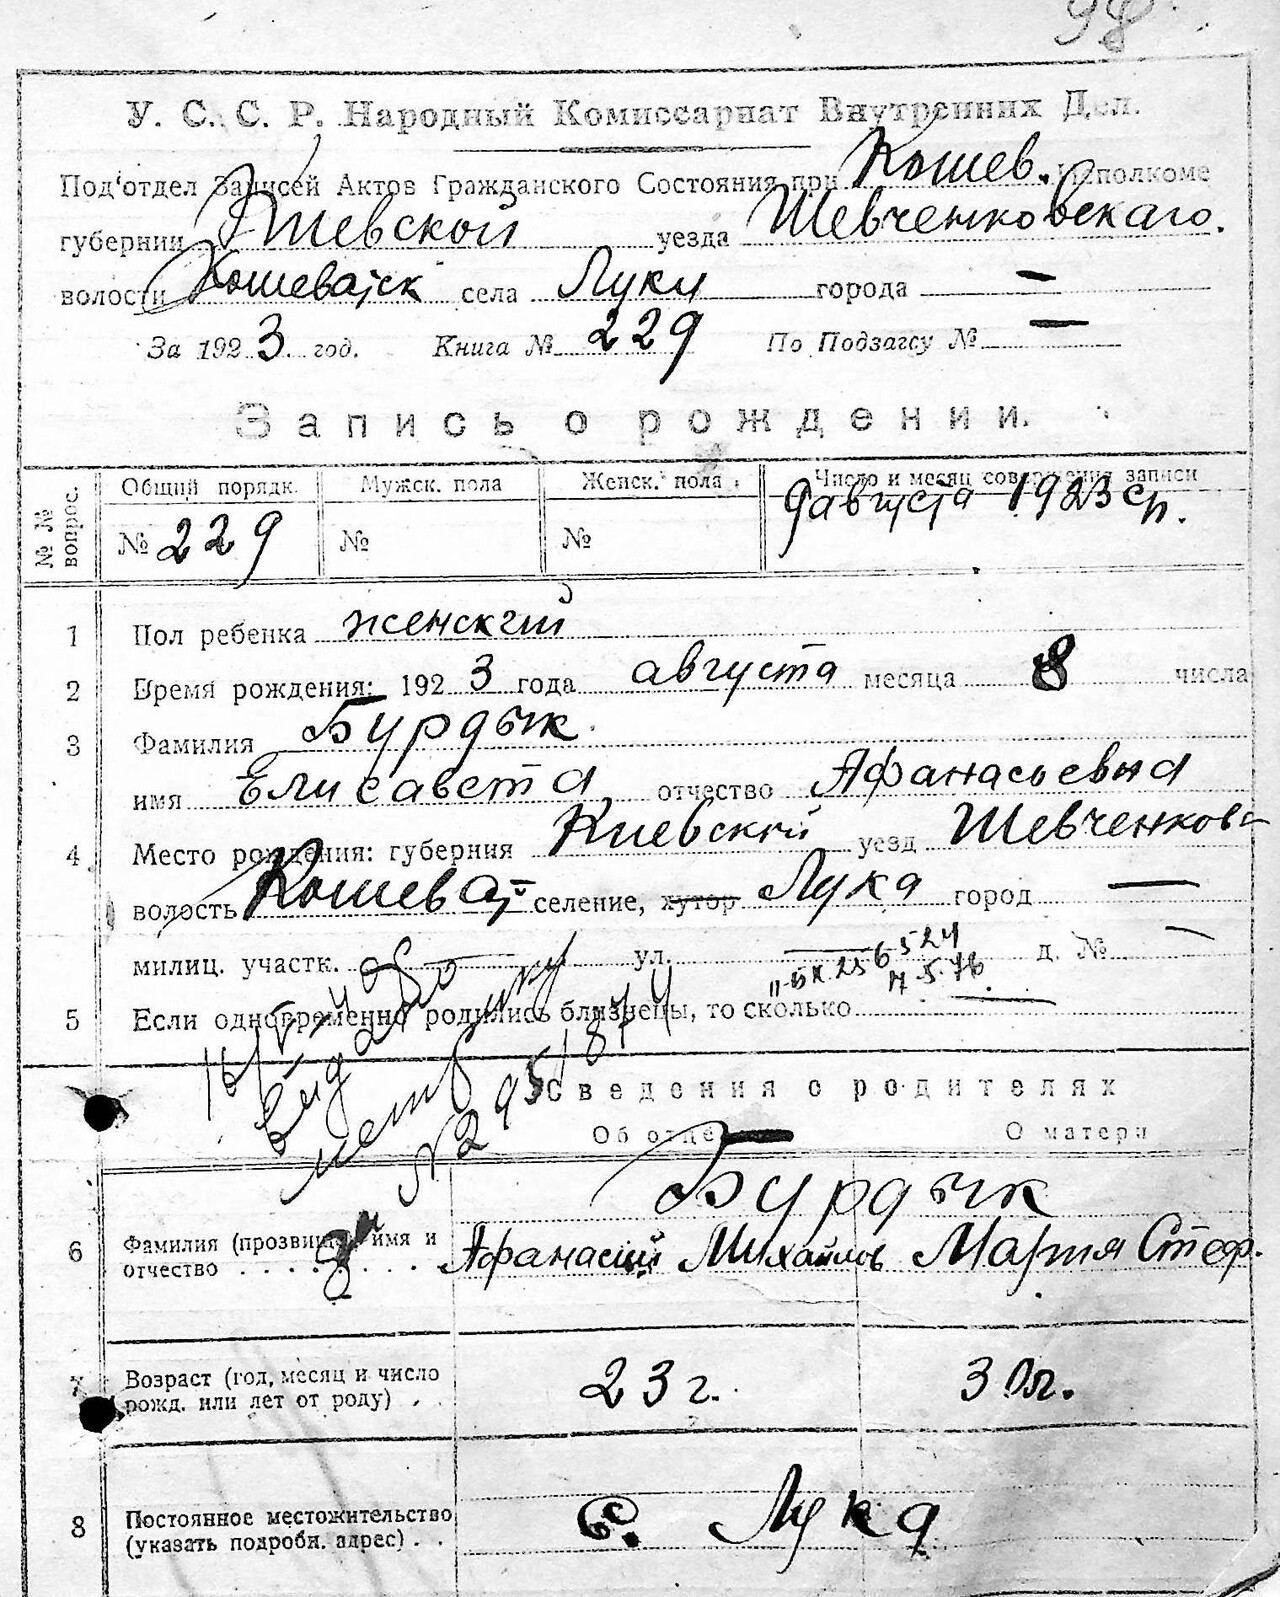 98
У. С. С. Р. Народный Комиссариат Внутренних Дел.
Под'отдел Записей Актов Гражданского Состояния при Кошев. Исполкоме
губернии Киевской уезда Шевченковскаго.
волости Кошеватск села Луки города —
За 1923 год. Книга № 229 По Подзагсу № —
Запись о рождении.
№№ вопрос.
Общий порядк. Мужск. пола Женск. пола Число и месяц совершения записи
№ 229 № № 9 августа 1923 ср.
1 Пол ребенка женский
2 Время рождения: 1923 года августа месяца 8 числа
3 Фамилия Бурдык
имя Елисавета отчество Афанасьевна
4 Место рождения: губерния Киевский уезд Шевченков
волость Кошеват селение, хутор Лука город —
милиц. участк. — ул. — д. № —
5 Если одновременно родились близнецы, то сколько —
выдано
метрику
Сведения о родителях
Об отце О матери
Бурдык
6 Фамилия (прозвище) имя и
отчество . . . . . . . Афанасий Михайлов Мария Стеф.
7 Возраст (год, месяц и число
рожд. или лет от роду) . . 23 г. 30 л.
8 Постоянное местожительство
(указать подробн. адрес) . . с. Лука